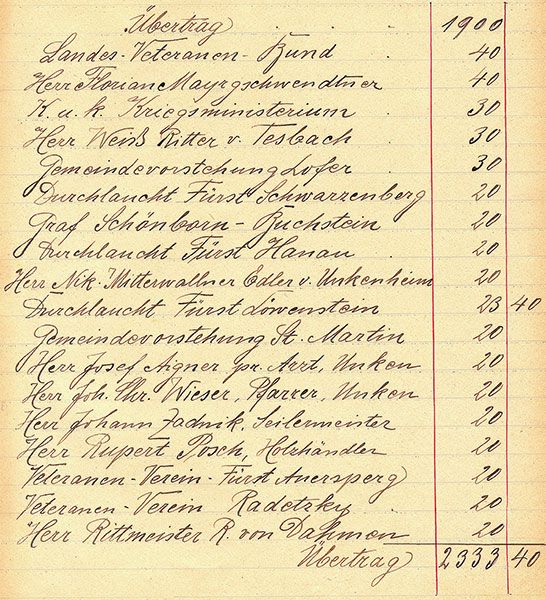 Übertrag . . . 1900
Landes-Veteranen-Bund 40
Herr Florian Mayrgschwendtner 40
K. u. k. Kriegsministerium . 30
Herr Weiß Ritter v. Tesbach . 30
Gemeindevorstehung Lofer . 30
Durchlaucht Fürst Schwarzenberg 20
Graf Schönborn-Buchstein . 20
Durchlaucht Fürst Hanau . 20
Herr Nik. Mitterwallner Edler v. Unkenheim 20
Durchlaucht Fürst Löwenstein 23 40
Gemeindevorstehung St. Martin 20
Herr Josef Aigner, pr. Arzt, Unken 20
Herr Joh. Chr. Wieser, Pfarrer, Unken 20
Herr Johann Zadnik, Seilermeister 20
Herr Rupert Posch, Holzhändler 20
Veteranen-Verein-Fürst Auersperg 20
Veteranen-Verein Radetzky . 20
Herr Rittmeister R. von Dahmen 20
Übertrag 2333 40